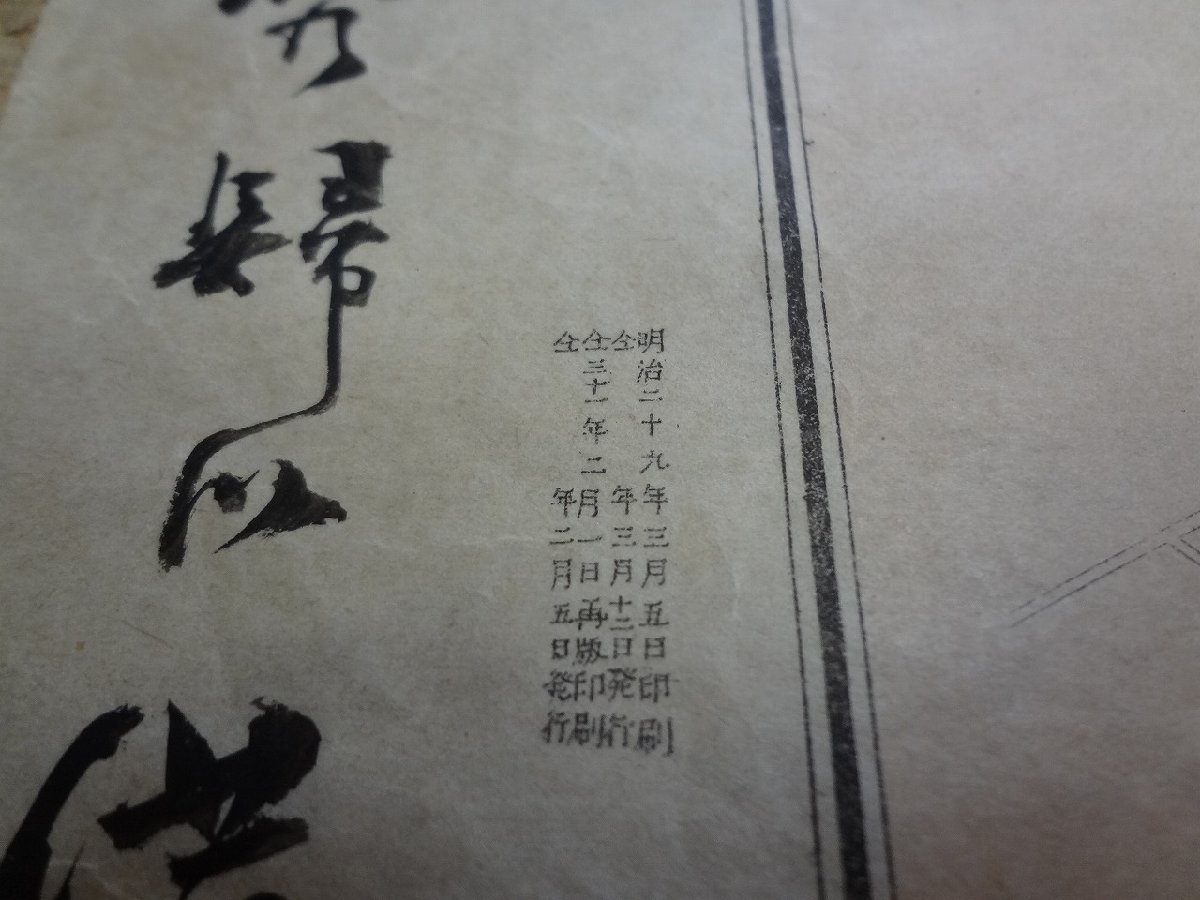 明治二十九年三月五日印刷
仝年三月十二日発行
仝三十一年二月一日再版印刷
仝年二月五日発行
歸以